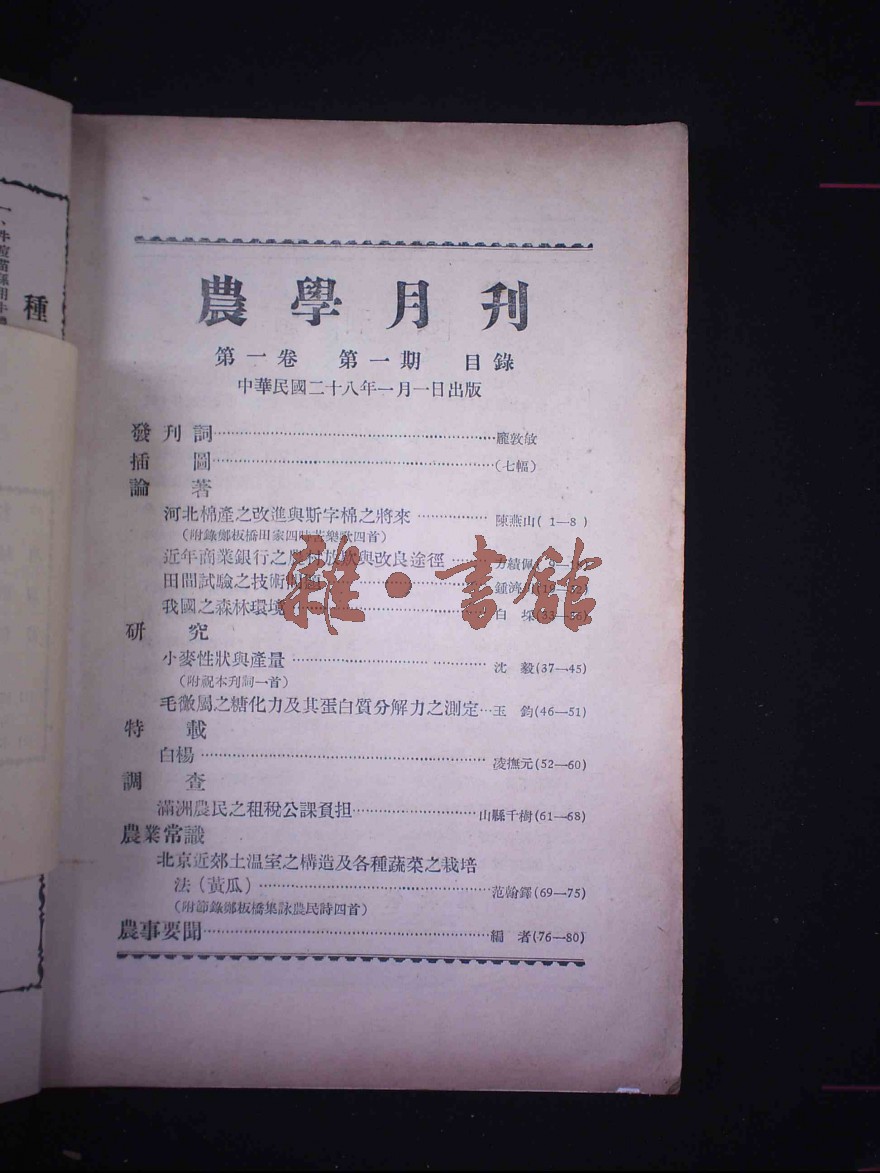 種
農學月刊
第一卷 第一期 目錄
中華民國二十八年一月一日出版
發刊詞……龐敦敏
插圖……(七幅)
論著
河北棉產之改進與斯字棉之將來……陳燕山(1—8)
(附錄鄭板橋田家四時苦樂歌四首)
近年商業銀行之農村放款與改良途徑……績佩(9—
田間試驗之技術……
我國之森林環境……白 埰(33—36)
研究
小麥性狀與產量……沈 毅(37—45)
(附祝本刊詞一首)
毛黴屬之糖化力及其蛋白質分解力之測定…王 鈞(46—51)
特載
白楊……凌撫元(52—60)
調查
滿洲農民之租稅公課負担……山縣千樹(61—68)
農業常識
北京近郊土温室之構造及各種蔬菜之栽培
法(黃瓜)……范翰鐸(69—75)
(附節錄鄭板橋集詠農民詩四首)
農事要聞……編 者(76—80)
雜·書館